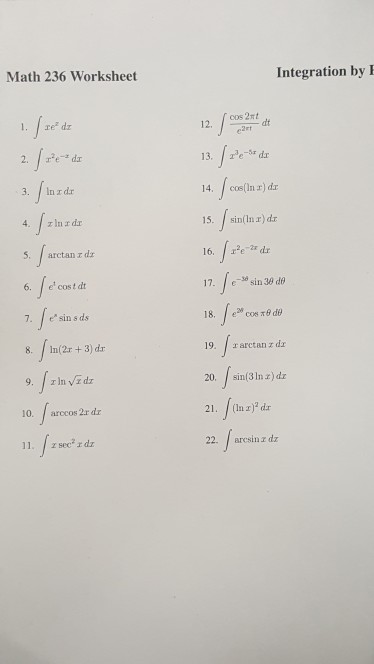 Math 236 Worksheet
Integration by
1. ∫ xeˣ dx
2. ∫ x²e⁻ˣ dx
3. ∫ ln x dx
4. ∫ x ln x dx
5. ∫ arctan x dx
6. ∫ eᵗ cos t dt
7. ∫ eˢ sin s ds
8. ∫ ln(2x + 3) dx
9. ∫ x ln √x dx
10. ∫ arccos 2x dx
11. ∫ x sec² x dx
12. ∫ cos 2πt / e²πᵗ dt
13. ∫ x³e⁻⁵ˣ dx
14. ∫ cos(ln x) dx
15. ∫ sin(ln x) dx
16. ∫ x²e⁻²ˣ dx
17. ∫ e⁻³ᶿ sin 3θ dθ
18. ∫ e²ᶿ cos πθ dθ
19. ∫ x arctan x dx
20. ∫ sin(3 ln x) dx
21. ∫ (ln x)² dx
22. ∫ arcsin x dx